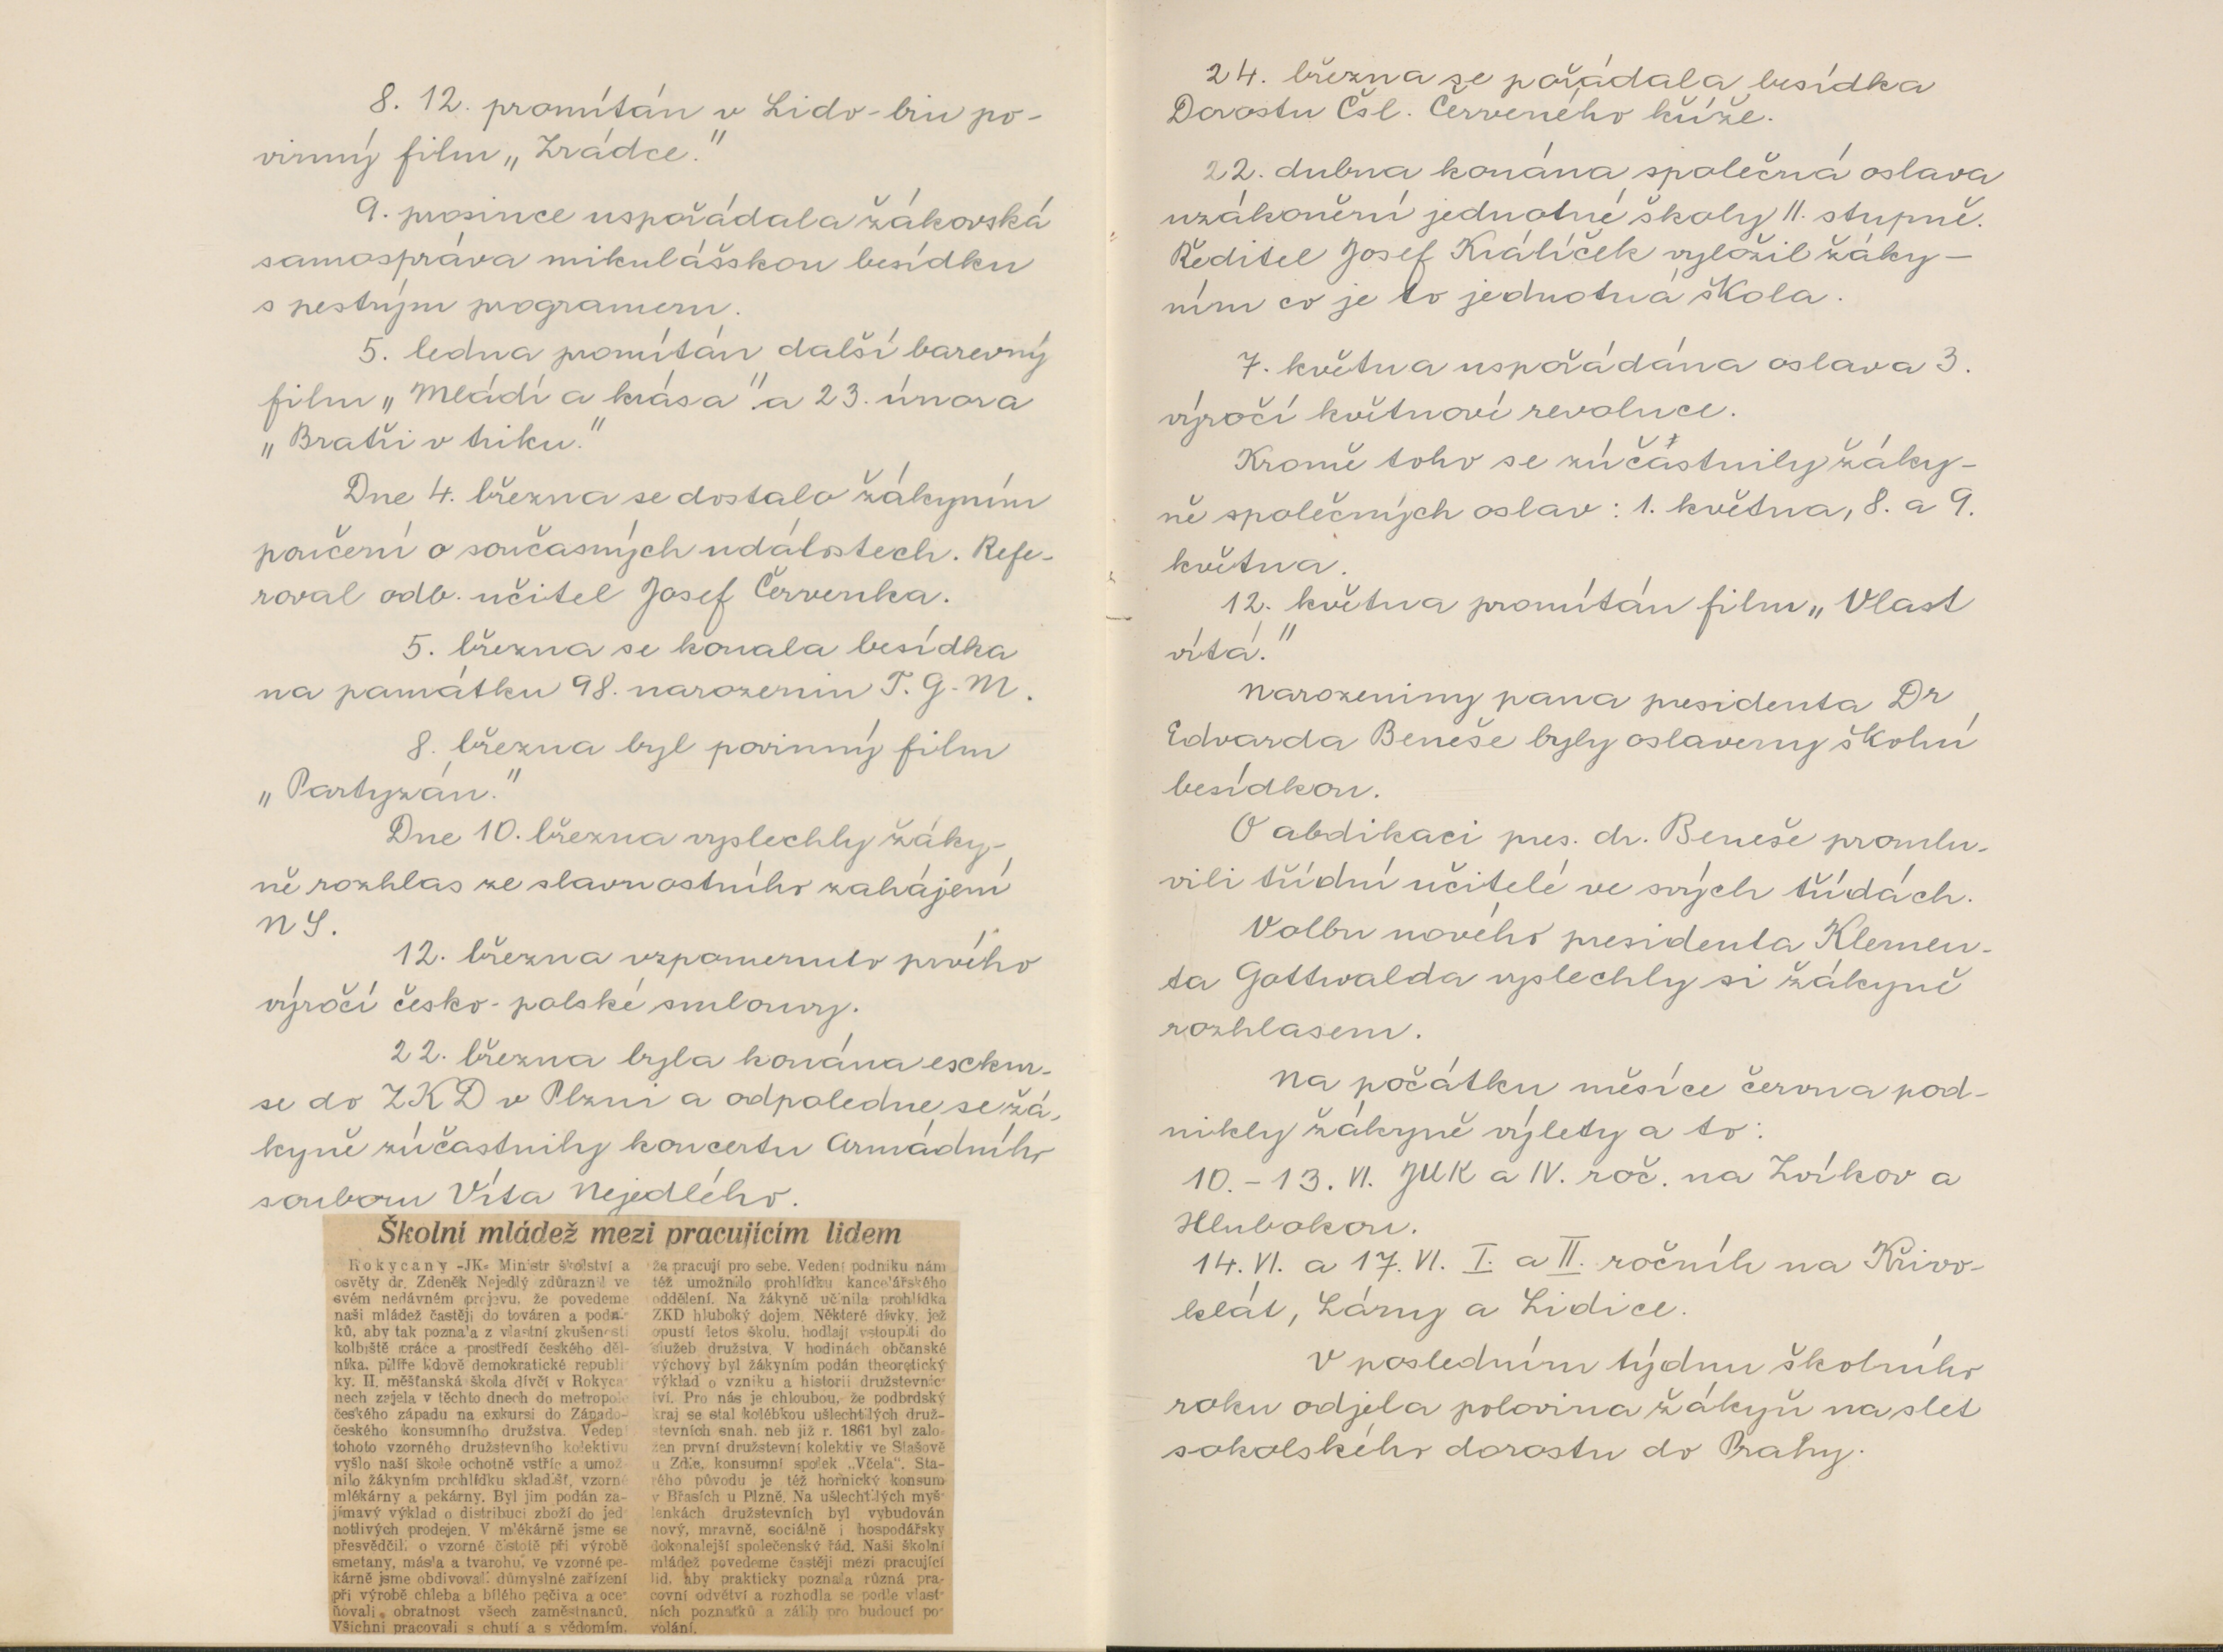 8. 12. promítán v Lido-biu po-
vinný film „Zrádce."
9. prosince uspořádala žákovská
samospráva mikulášskou besídku
s pestrým programem.
5. ledna promítán další barevný
film „Mládí a krása" a 23. února
„Bratři v triku."
Dne 4. března se dostalo žákyním
poučení o současných událostech. Refe-
roval odb. učitel Josef Červenka.
5. března se konala besídka
na památku 98. narozenin T. G. M.
8. března byl povinný film
„Partyzán."
Dne 10. března vyslechly žáky-
ně rozhlas ze slavnostního zahájení
NS.
12. března vzpomenuto prvého
výročí česko-polské smlouvy.
22. března byla konána esckur-
se do ZKD v Plzni a odpoledne se žá-
kyně zúčastnily koncertu Armádního
souboru Víta Nejedlého.
Školní mládež mezi pracujícím lidem
Rokycany -JK- Ministr školství a
osvěty dr. Zdeněk Nejedlý zdůraznil ve
svém nedávném projevu, že povedeme
naši mládež častěji do továren a podni-
ků, aby tak poznala z vlastní zkušenosti
kolbiště práce a prostředí českého děl-
níka, pilíře lidově demokratické republi-
ky. II. měšťanská škola dívčí v Rokyca-
nech zajela v těchto dnech do metropole
českého západu na exkursi do Západo-
českého konsumního družstva. Vedení
tohoto vzorného družstevního kolektivu
vyšlo naší škole ochotně vstříc a umož-
nilo žákyním prohlídku skladišť, vzorné
mlékárny a pekárny. Byl jim podán za-
jímavý výklad o distribuci zboží do jed-
notlivých prodejen. V mlékárně jsme se
přesvědčili o vzorné čistotě při výrobě
smetany, másla a tvarohu, ve vzorné pe-
kárně jsme obdivovali důmyslné zařízení
při výrobě chleba a bílého pečiva a oce-
ňovali obratnost všech zaměstnanců.
Všichni pracovali s chutí a s vědomím,
že pracují pro sebe. Vedení podniku nám
též umožnilo prohlídku kancelářského
oddělení. Na žákyně učinila prohlídka
ZKD hluboký dojem. Některé dívky, jež
opustí letos školu, hodlají vstoupiti do
služeb družstva. V hodinách občanské
výchovy byl žákyním podán theoretický
výklad o vzniku a historii družstevnic-
tví. Pro nás je chloubou, že podbrdský
kraj se stal kolébkou ušlechtilých druž-
stevních snah, neb již r. 1861 byl zalo-
žen první družstevní kolektiv ve Stašově
u Zdic, konsumní spolek „Včela". Sta-
rého původu je též hornický konsum
v Břasích u Plzně. Na ušlechtilých myš-
lenkách družstevních byl vybudován
nový, mravně, sociálně i hospodářsky
dokonalejší společenský řád. Naši školní
mládež povedeme častěji mezi pracující
lid, aby prakticky poznala různá pra-
covní odvětví a rozhodla se podle vlast-
ních poznatků a zálib pro budoucí po-
volání.
24. března se pořádala besídka
Dorostu Čsl. Červeného kříže.
22. dubna konána společná oslava
uzákonění jednotné školy II. stupně.
Ředitel Josef Králíček vyložil žáky-
ním co je to jednotná škola.
7. května uspořádána oslava 3.
výročí květnové revoluce.
Kromě toho se zúčastnily žáky-
ně společných oslav: 1. května, 8. a 9.
května.
12. května promítán film „Vlast
vítá."
Narozeniny pana presidenta Dr
Edvarda Beneše byly oslaveny školní
besídkou.
O abdikaci pres. dr. Beneše promlu-
vili třídní učitelé ve svých třídách.
Volbu nového presidenta Klemen-
ta Gottwalda vyslechly si žákyně
rozhlasem.
Na počátku měsíce června pod-
nikly žákyně výlety a to:
10.-13. VI. JUK a IV. roč. na Zvíkov a
Hlubokou.
14. VI. a 17. VI. I. a II. ročník na Křivo-
klát, Lány a Lidice.
V posledním týdnu školního
roku odjela polovina žákyň na slet
sokolského dorostu do Prahy.